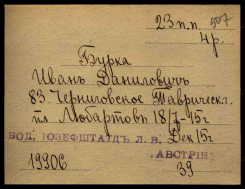 23 п.п. 507
4 р.
Бурка
Иванъ Даниловичъ
83. Черниговское Таврическ.
м. Любартовъ 18/7-15г
ВОД. ІОЗЕФШТАДТЪ Л. В. Дек 15г
АВСТРІЯ
19906
39